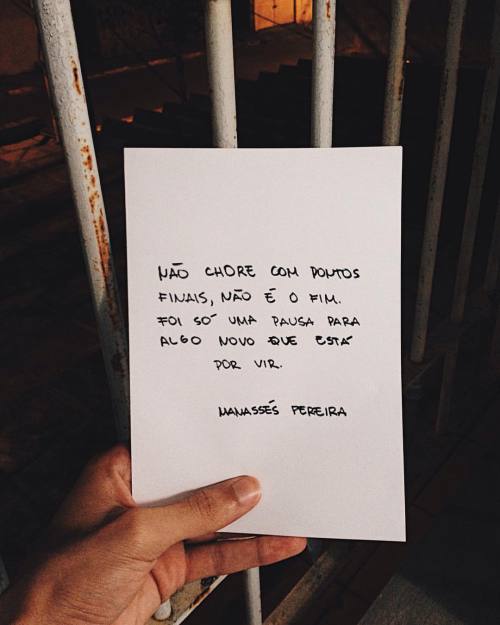 NÃO CHORE COM PONTOS
FINAIS, NÃO É O FIM.
FOI SÓ UMA PAUSA PARA
ALGO NOVO QUE ESTÁ
POR VIR.
MANASSÉS PEREIRA